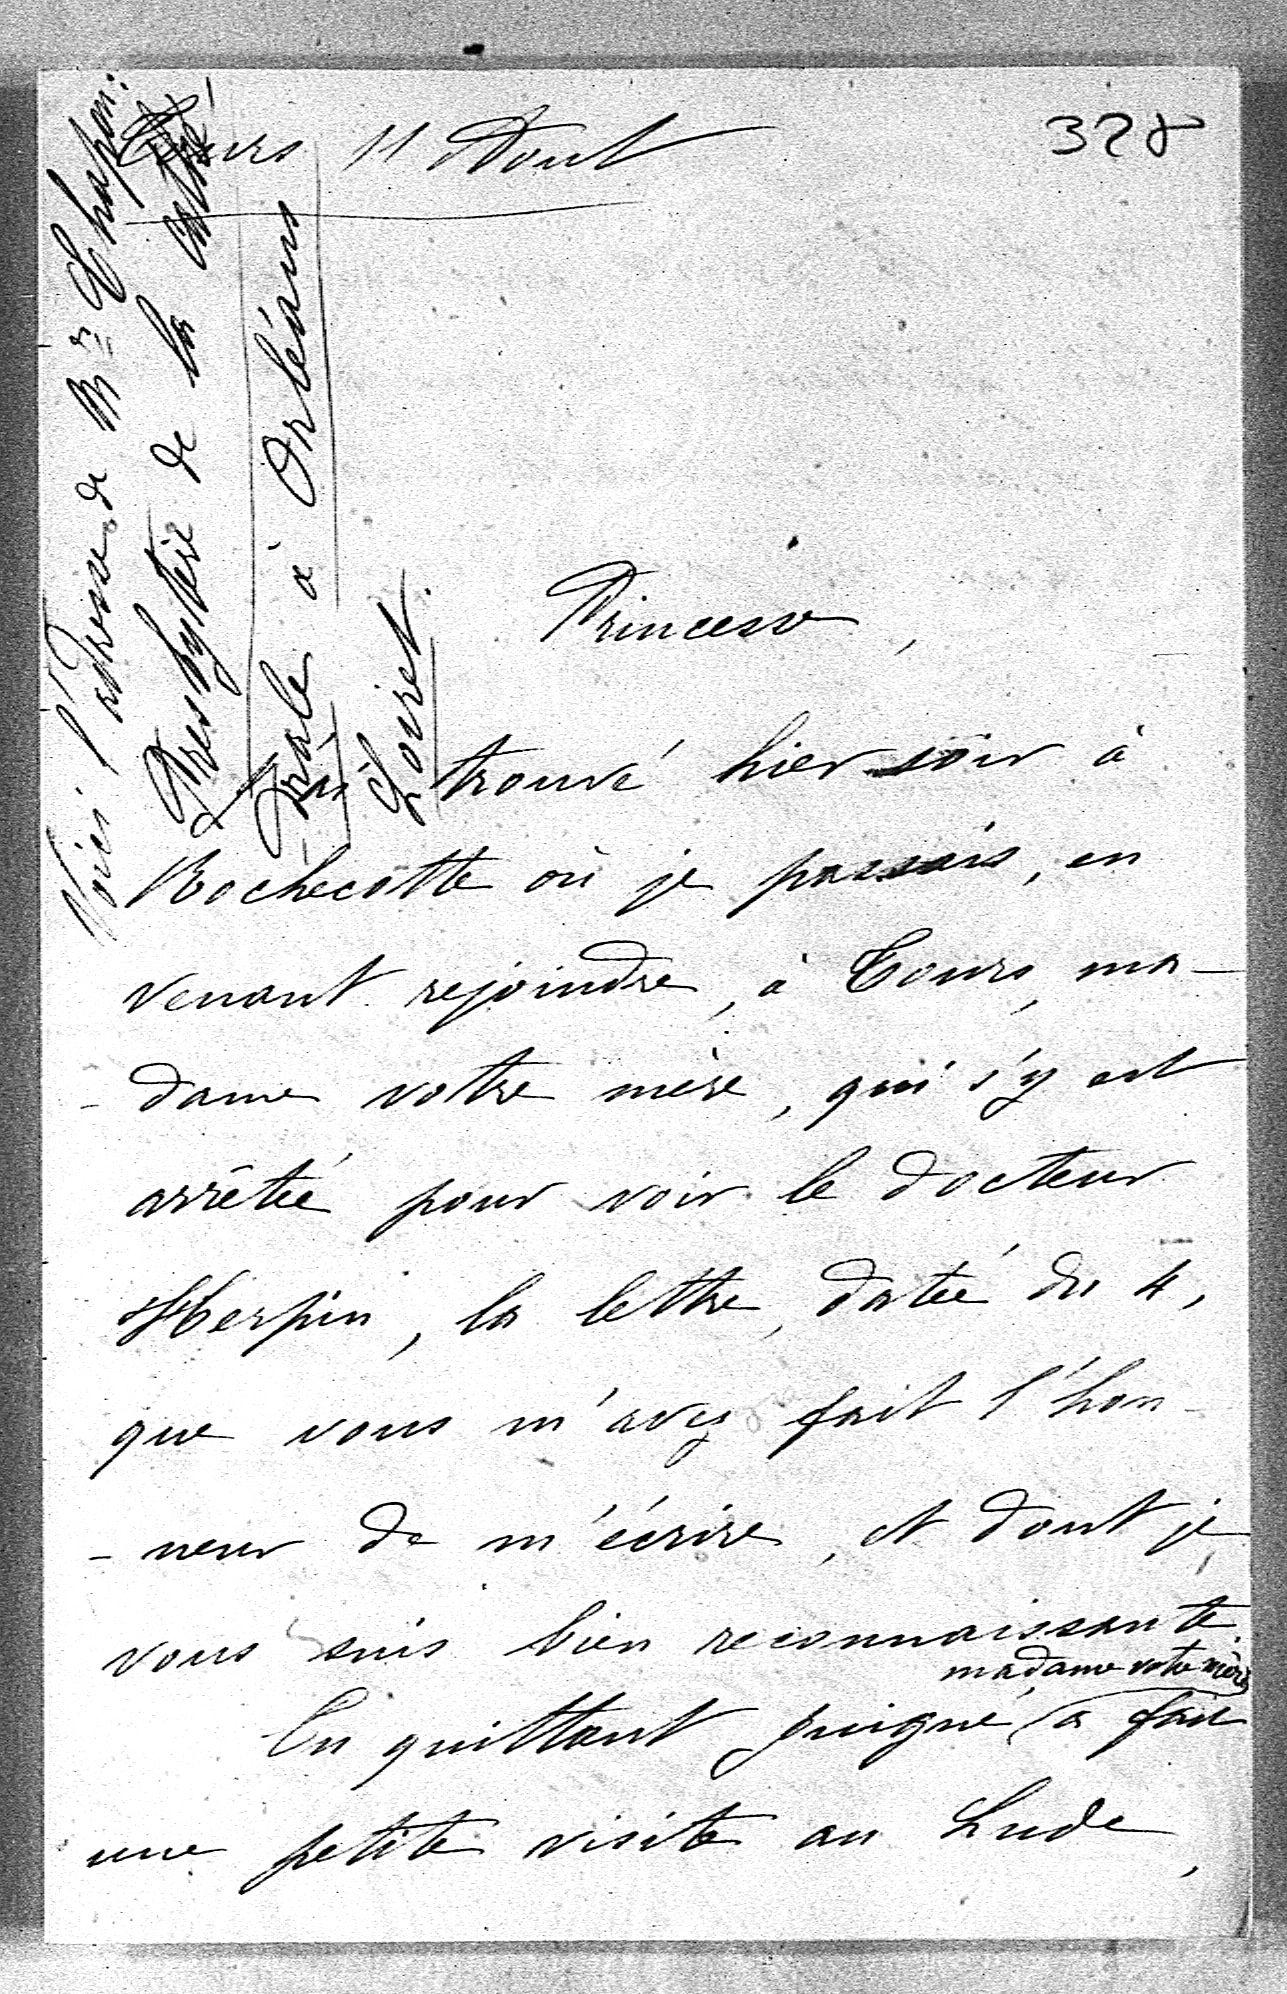 Tours 11 Aout
328
Voici l'adresse de Mr Chapon:
Presbytère de la cathé-
-drale à Orléans
Loiret.
Princesse,
J'ai trouvé hier soir à
Rochecotte où je passais, en
venant rejoindre, à Tours, ma-
-dame votre mère, qui s'y est
arrêtée pour voir le docteur
Herpin, la lettre, datée du 4,
que vous m'avez fait l'hon-
-neur de m'écrire, et dont je
vous suis bien reconnaissante.
madame votre mère
En quittant Juigné, a fait
une petite visite au Lude,